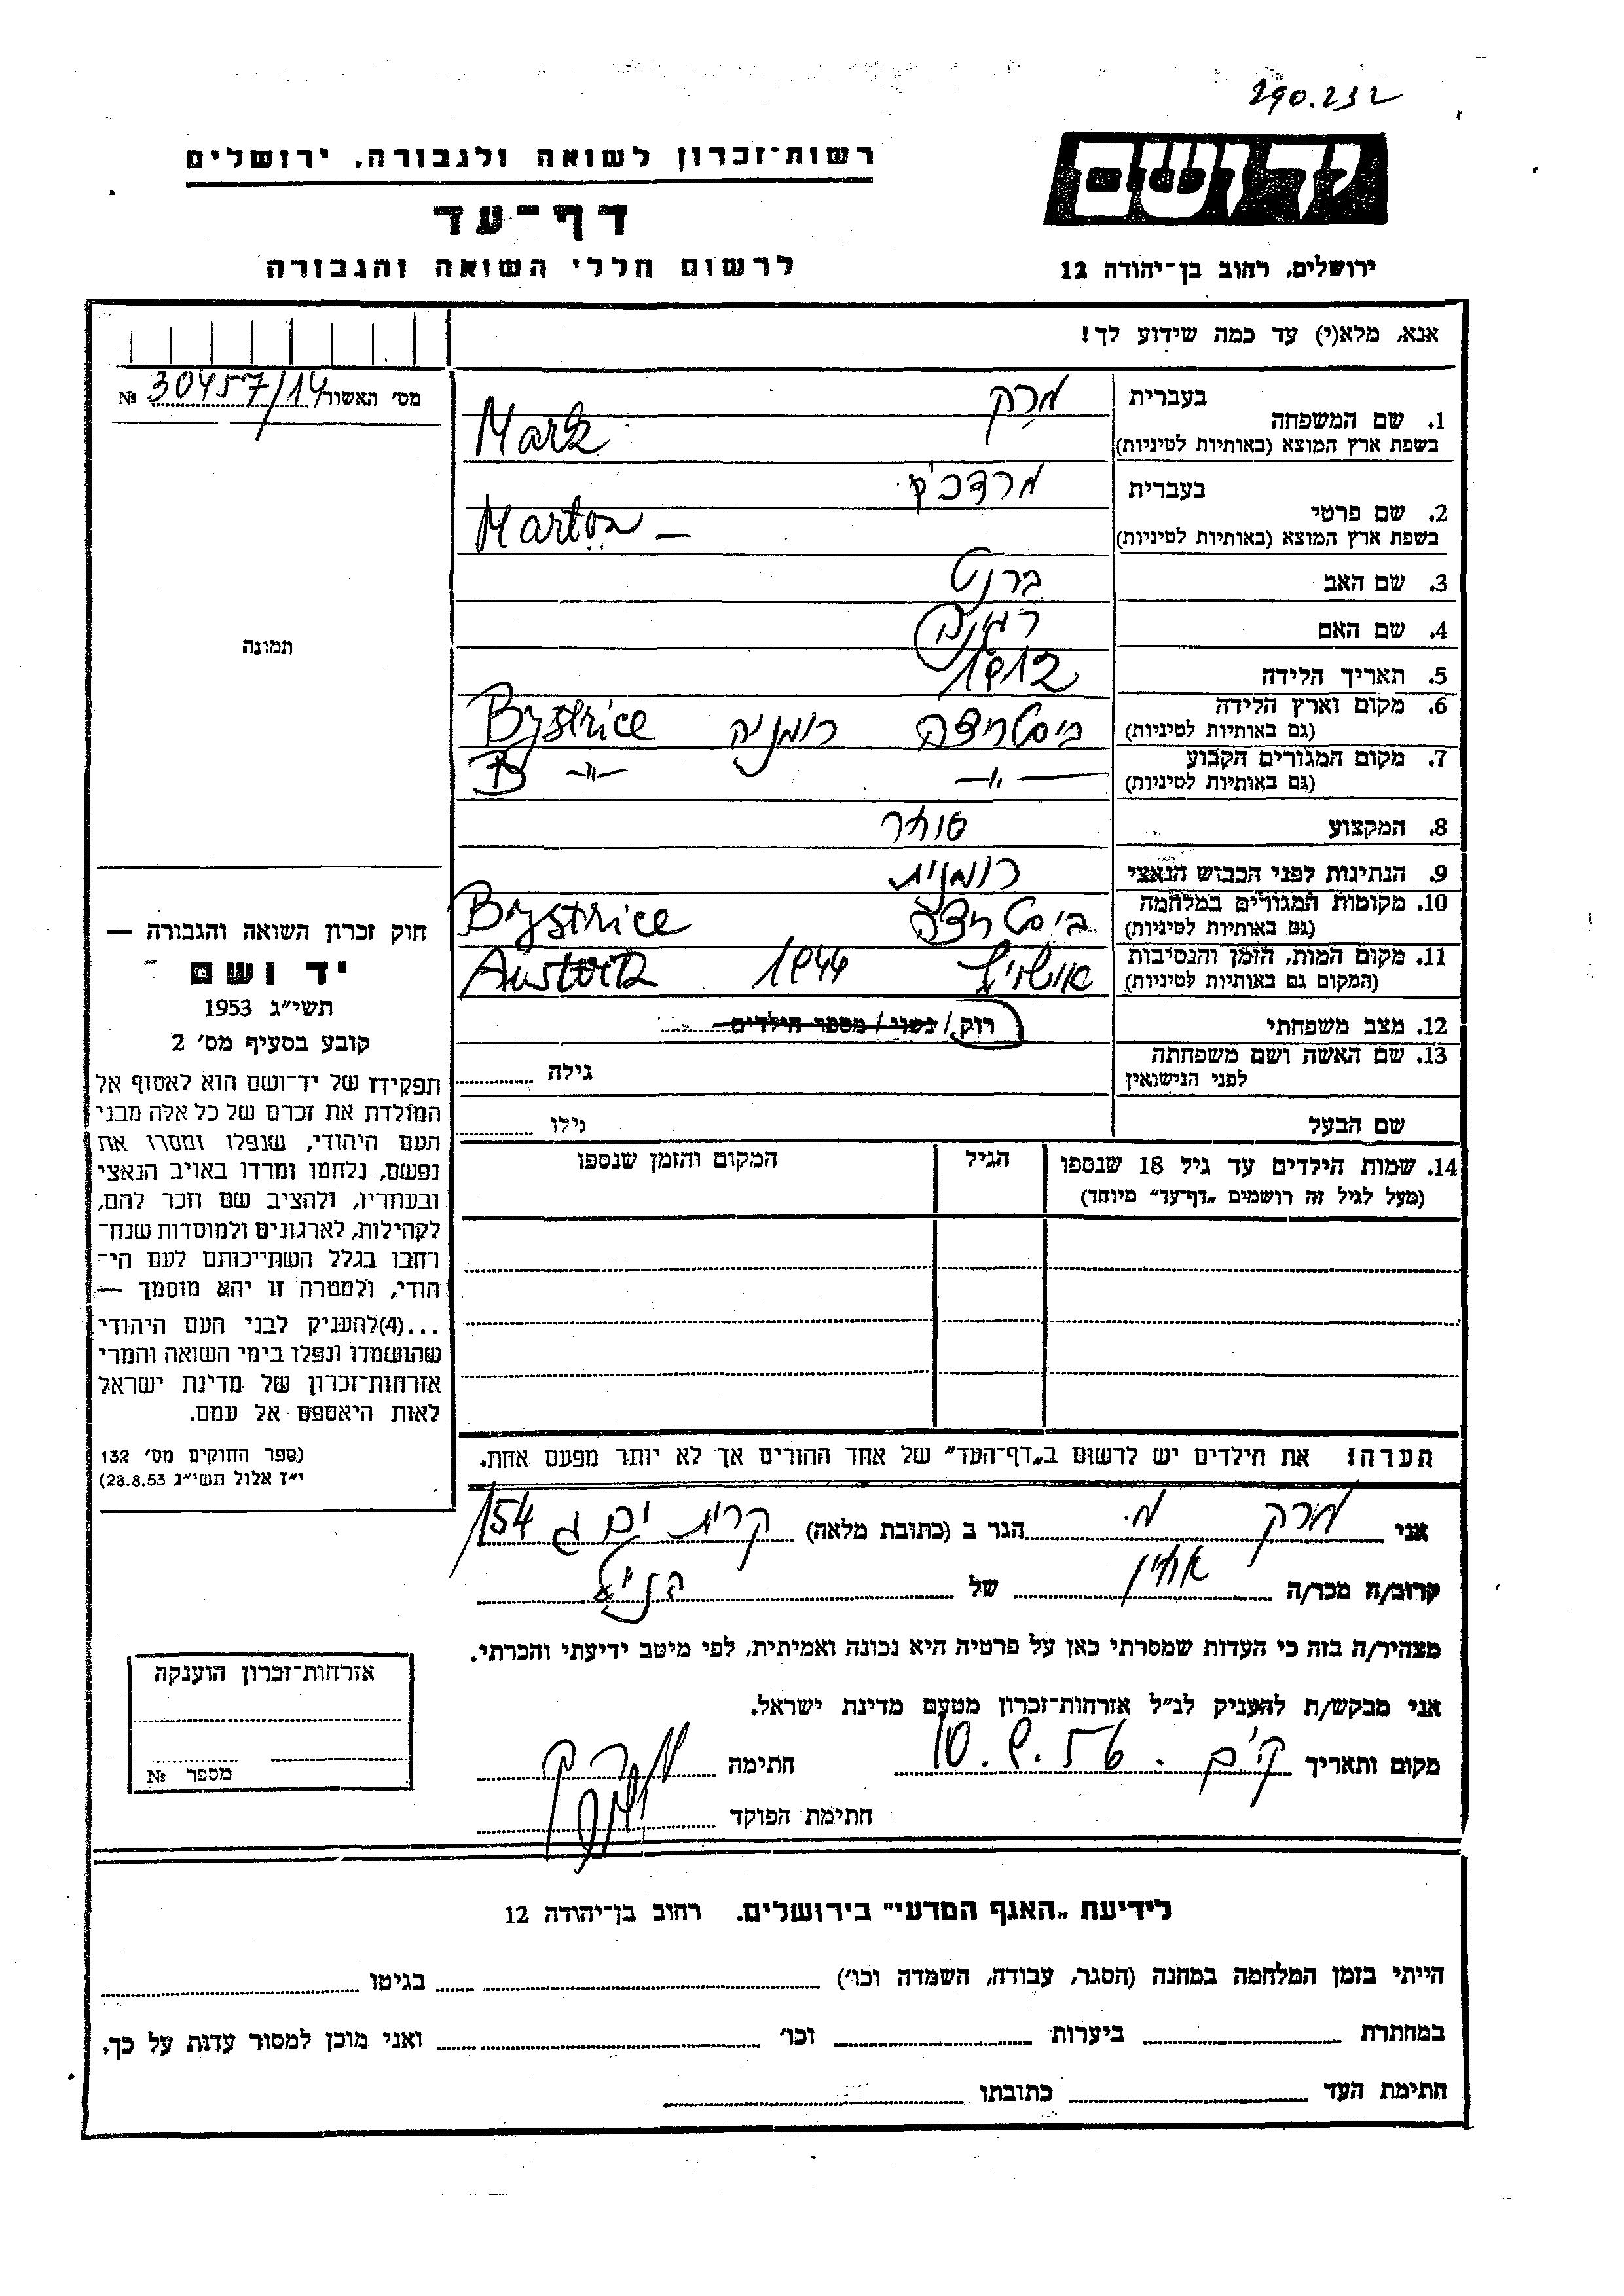 290.232
יד ושם
רשות־זכרון לשואה ולגבורה, ירושלים
דף־עד
לרשום חללי השואה והגבורה
ירושלים, רחוב בן־יהודה 12
אנא, מלא(י) עד כמה שידוע לך!
מס׳ האשור 30457/14 №
1. שם המשפחה
בעברית מרק
בשפת ארץ המוצא (באותיות לטיניות) Mark
2. שם פרטי
בעברית מרדכי
בשפת ארץ המוצא (באותיות לטיניות) Marton –
3. שם האב ברנט
4. שם האם
5. תאריך הלידה 1912
6. מקום וארץ הלידה ביסטריצה רומניה Bystrice
(גם באותיות לטיניות)
7. מקום המגורים הקבוע —״— B —״—
(גם באותיות לטיניות)
8. המקצוע סוחר
9. הנתינות לפני הכבוש הנאצי רומנית
10. מקומות המגורים במלחמה ביסטריצה Bystrice
(גם באותיות לטיניות)
11. מקום המות, הזמן והנסיבות אושויץ 1944 Austvitz
(המקום גם באותיות לטיניות)
12. מצב משפחתי רוק / נשוי / מספר הילדים
13. שם האשה ושם משפחתה
לפני הנישואין
גילה
שם הבעל
גילו
14. שמות הילדים עד גיל 18 שנספו
(מעל לגיל זה רושמים „דף־עד״ מיוחד)
הגיל
המקום והזמן שנספו
הערה! את הילדים יש לרשום ב„דף־העד״ של אחד ההורים אך לא יותר מפעם אחת.
תמונה
חוק זכרון השואה והגבורה —
יד ושם
תשי״ג 1953
קובע בסעיף מס׳ 2
תפקידו של יד־ושם הוא לאסוף אל
המולדת את זכרם של כל אלה מבני
העם היהודי, שנפלו ומסרו את
נפשם, נלחמו ומרדו באויב הנאצי
ובעוזריו, ולהציב שם וזכר להם,
לקהילות, לארגונים ולמוסדות שנח־
רבו בגלל השתייכותם לעם הי־
הודי, ולמטרה זו יהא מוסמך —
...(4)להעניק לבני העם היהודי
שהושמדו ונפלו בימי השואה והמרי
אזרחות־זכרון של מדינת ישראל
לאות היאספם אל עמם.
(ספר החוקים מס׳ 132
י״ז אלול תשי״ג 28.8.53)
אני מרק מ. הגר ב (כתובת מלאה) קרית ים ג 154
קרוב/ה מכר/ה אחיו של הנ״ל
מצהיר/ה בזה כי העדות שמסרתי כאן על פרטיה היא נכונה ואמיתית, לפי מיטב ידיעתי והכרתי.
אני מבקש/ת להעניק לנ״ל אזרחות־זכרון מטעם מדינת ישראל.
מקום ותאריך ק׳ים . 10.9.56 חתימה מרק
חתימת הפוקד
אזרחות־זכרון הוענקה
מספר №
לידיעת „האגף המדעי״ בירושלים. רחוב בן־יהודה 12
הייתי בזמן המלחמה במחנה (הסגר, עבודה, השמדה וכו׳) בגיטו
במחתרת ביערות וכו׳ ואני מוכן למסור עדות על כך.
חתימת העד כתובתו